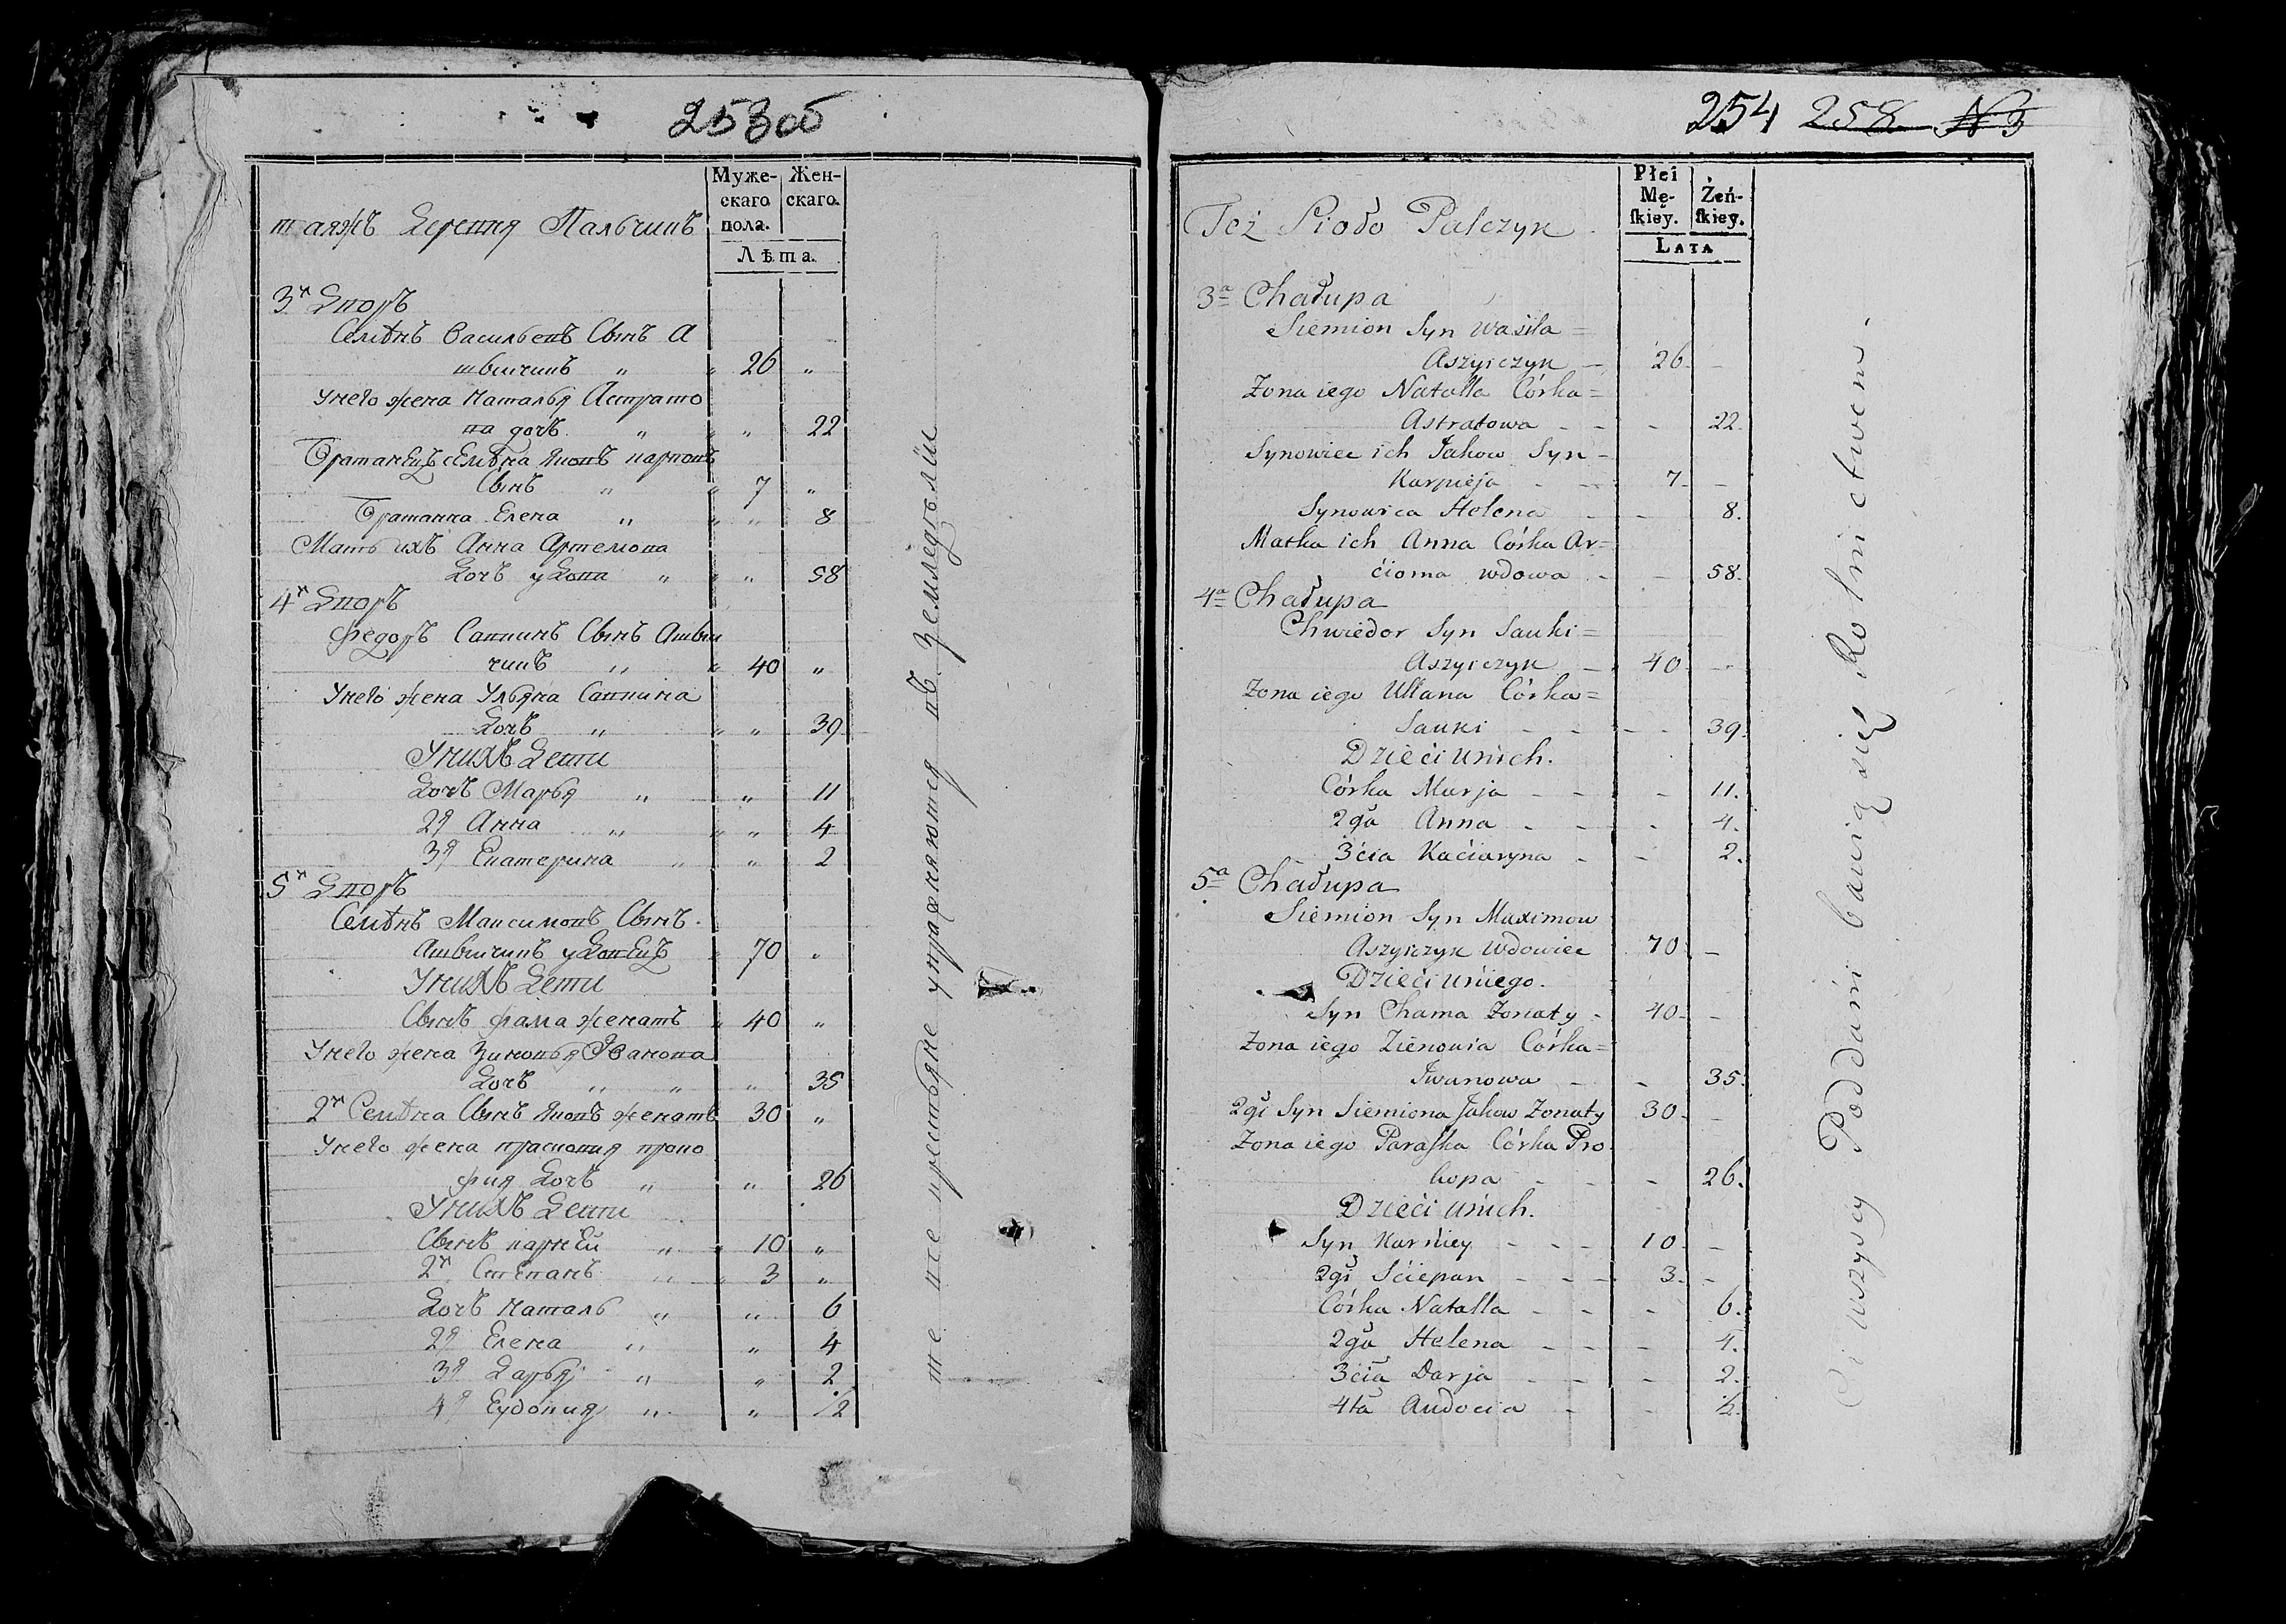 253об
Муже-
скаго
пола.
Жен-
скаго.
Лѣта.
таяжъ Деревня Пальчинъ
3й Дворъ
Семѣнъ Васильевъ Сынъ А
шычикъ " " 26 "
Унего жена Наталья Астрато
ва дочь " " " 22
Братанецъ Семѣна Яковъ Карповъ
Сынъ " " 7 "
Братанка Елена " " " 8
Мать ихъ Анна Артемова
Дочь удова " " " 58
4й Дворъ
Федоръ Савкинъ Сынъ Ашы
чикъ " " 40 "
Унего жена Ульяна Савкина
Дочь " " " 39
Унихъ Дети
Дочь Марья " " 11
2я Анна " " " 4
3я Екатерина " " 2
5й Дворъ
Семѣнъ Максимовъ Сынъ
Ашычикъ удовецъ " 70 "
Унихъ Дети
Сынъ фама женатъ " 40 "
Унего жена Зиновья Иванова
Дочь " " " 35
2й Семѣна Сынъ Яковъ женатъ 30 "
Унего жена прасковия проко
фия Дочь " " 26
Унихъ Дети
Сынъ карнЕй " " 10 "
2й Степанъ " " 3 "
Дочь Наталь " " 6
2я Елена " " 4
3я Дарья " " 2
4я Еудокия " " 1/2
те все крестьяне упражняются въ Земледѣлии
254 258 N 3
Płci
Mę-
ſkiey.
Żeń-
ſkiey.
LATA
Też Sioło Palczyk
3a Chałupa
Siemion Syn Wasila =
Aszyiczyk - 26 -
Zona iego Natalla Córka =
Astratowa - - - 22.
Synowiec ich Jakow Syn -
Karpieja - - 7 -
Synowica Helena - - 8.
Matka ich Anna Córka Ar=
cioma wdowa - - 58.
4a Chałupa
Chwiedor Syn Sauki =
Aszyiczyk - 40 -
Zona iego Ullana Córka =
Sauki - - - 39.
Dzieci unich.
Córka Marja - - - 11.
2ga Anna - - - 4.
3cia Kaciaryna - - 2.
5a Chałupa
Siemion Syn Maximow
Aszyiczyk Wdowiec 70 -
Dzieci uniego.
Syn Chama Zonaty - 40 -
Zona iego Zienowia Córka =
Iwanowa - - 35.
2gi Syn Siemiona Jakow Zonaty 30 -
Zona iego Paraſka Córka Pro
kopa - - - 26.
Dzieci unich.
Syn Karniey - - - 10 -
2gi Sciepan - - - 3 -
Córka Natalla - - - 6.
2ga Helena - - - 4.
3cia Darja - - - 2.
4ta Audocia - - 1/2.
Ci wszyscy Poddani bawią się Rolnictwem.